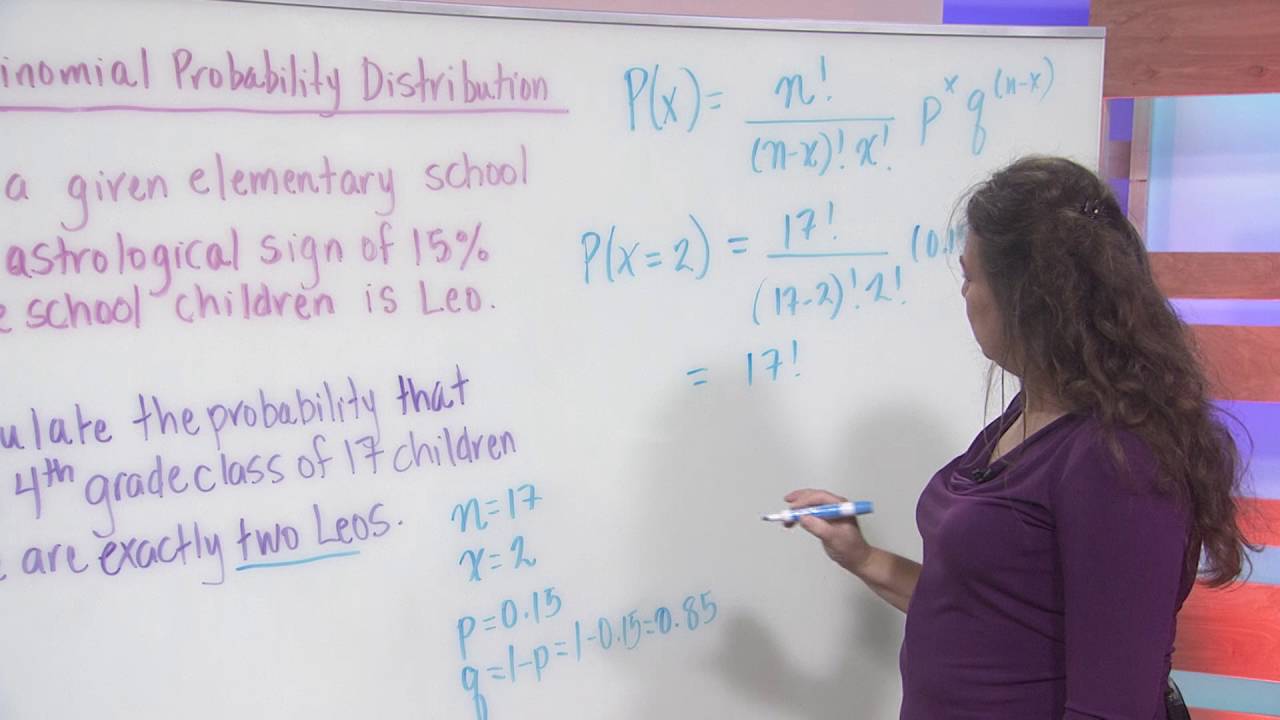 inomial Probability Distribution
a given elementary school
astrological sign of 15%
e school children is Leo.
ulate the probability that
4th grade class of 17 children
are exactly two Leos.
n=17
x=2
p=0.15
q=1-p=1-0.15=0.85
P(x)= n! / (n-x)! x! p^x q^(n-x)
P(x=2) = 17! / (17-2)! 2! (0.15
= 17!